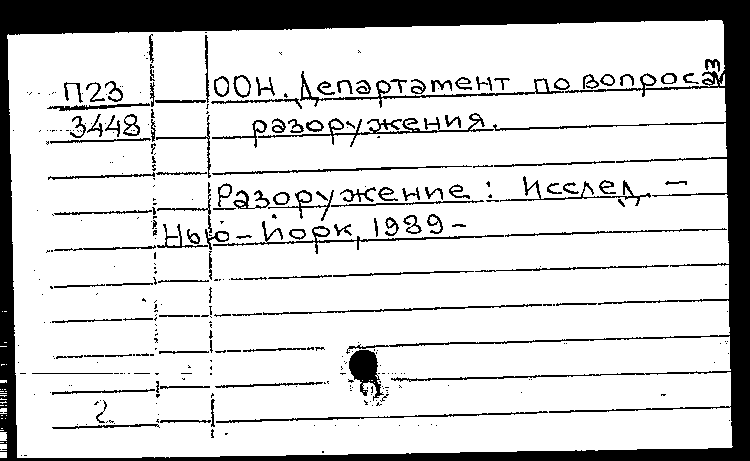 П23 ООН. Департамент по вопросам
3448 разоружения.
Разоружение: Исслед. —
Нью-Йорк, 1989-
2